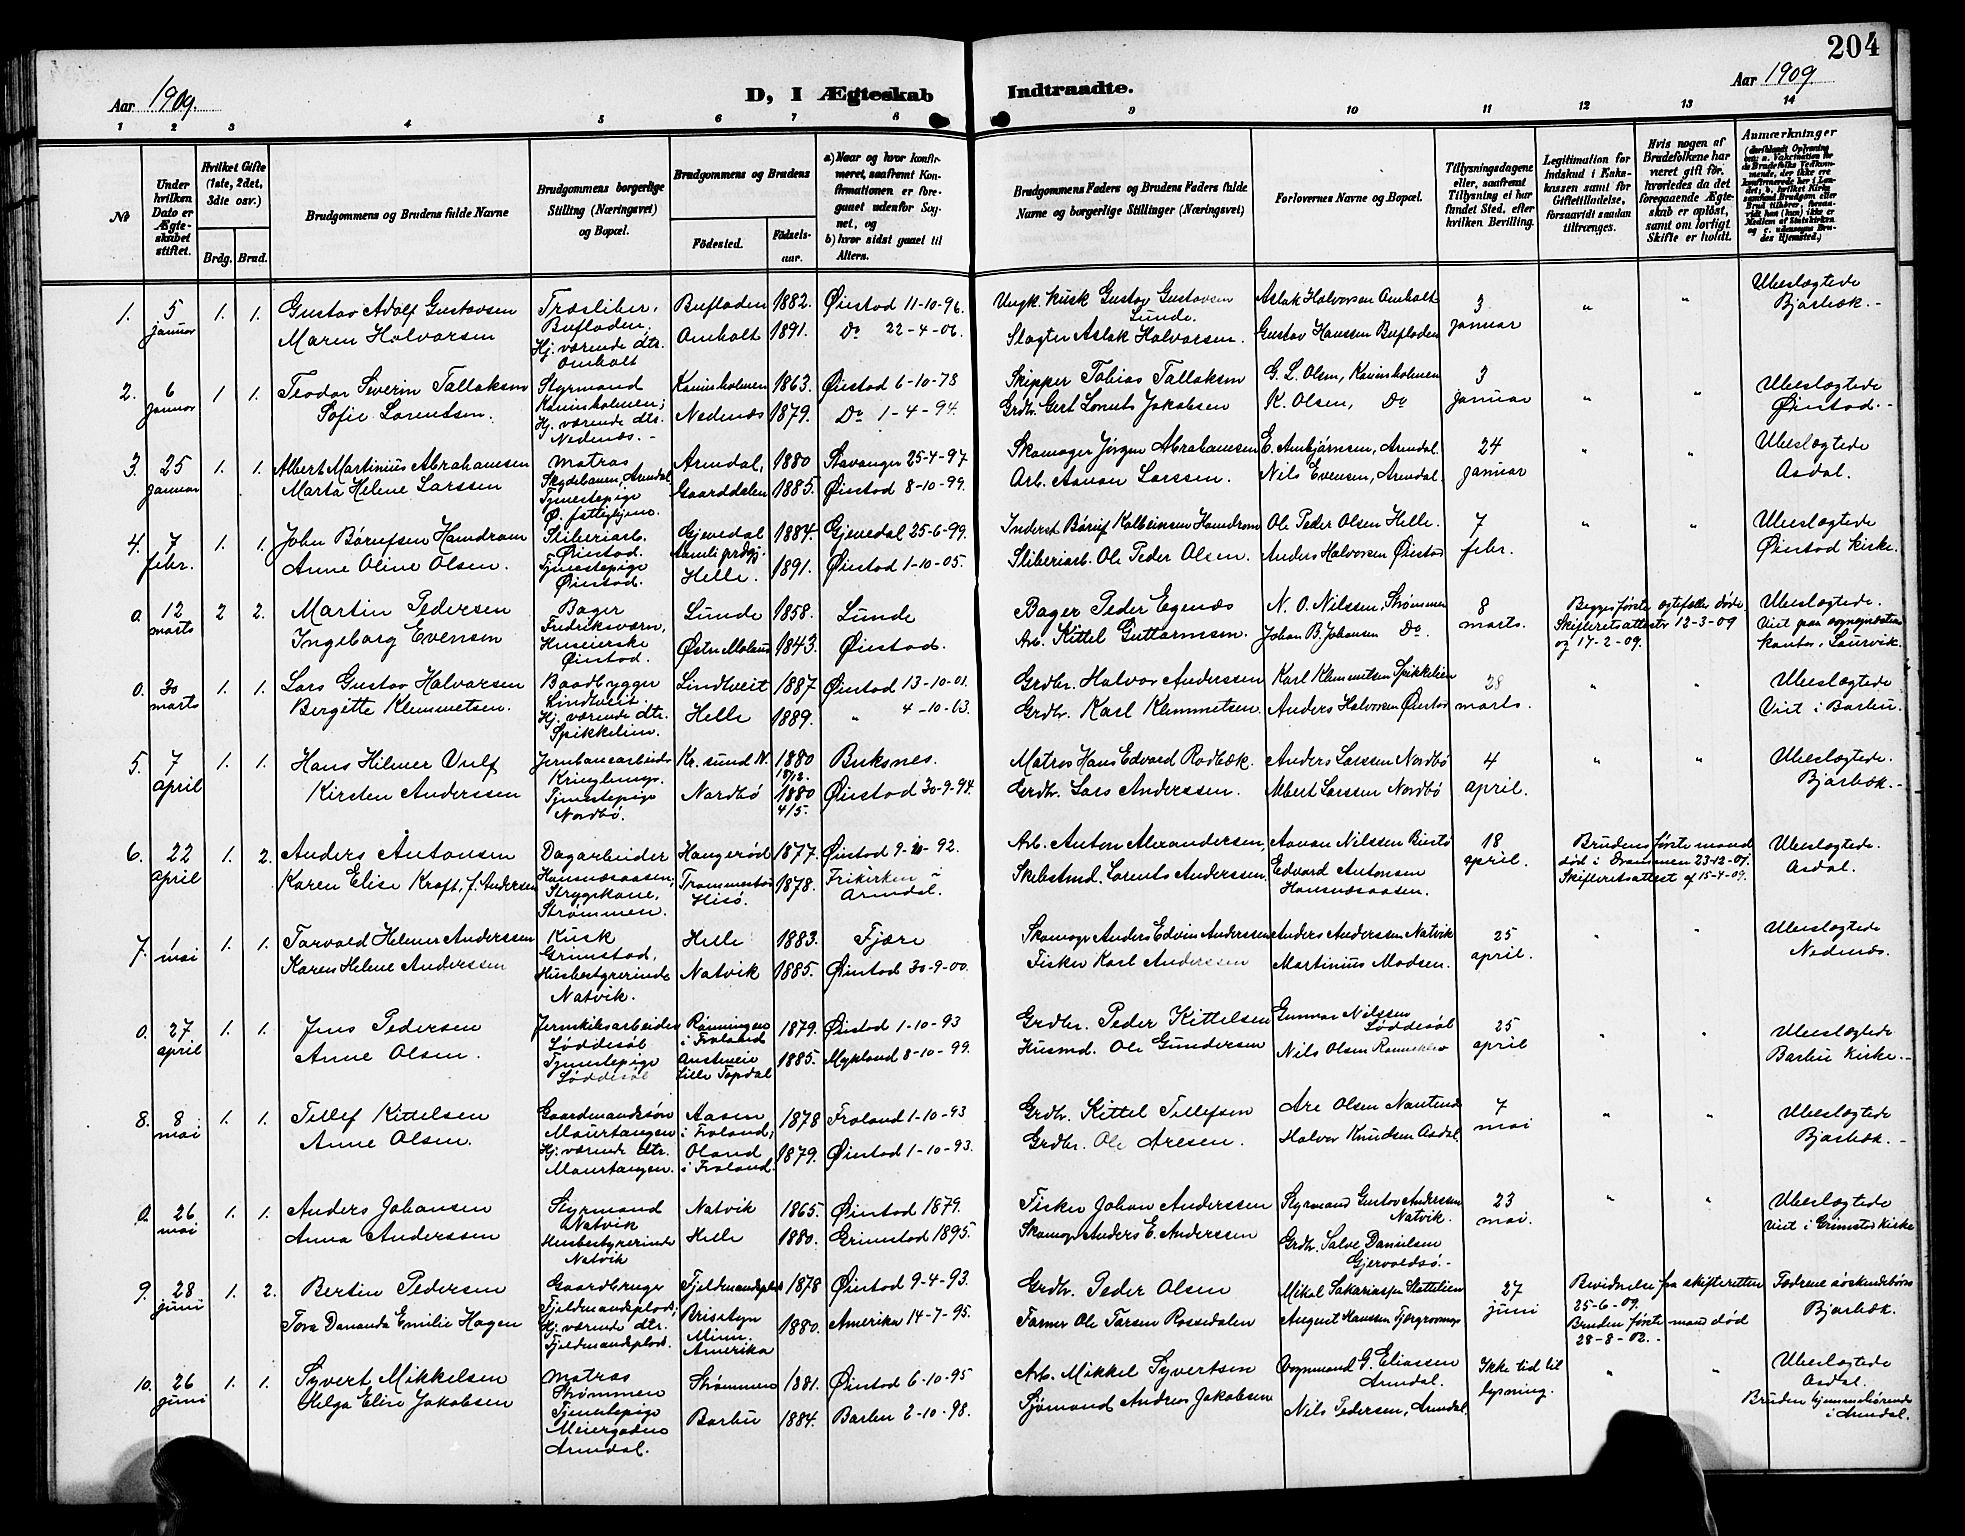 204
Aar 1909.
D, I Ægteskab
Indtraadte.
Aar 1909.
1 2 3 4 5 6 7 8 9 10 11 12 13 14
No
Under hvilken Dato er Ægteskabet stiftet.
Hvilket Gifte (1ste, 2det, 3die osv.)
Brdg. Brud.
Brudgommens og Brudens fulde Navne
Brudgommens borgerlige Stilling (Næringsvei) og Bopæl.
Brudgommens og Brudens
Fødested. Fødselsaar.
a) Naar og hvor konfirmeret, saafremt Konfirmationen er foregaaet udenfor Sognet, og
b) hvor sidst gaaet til Alters.
Brudgommens Faders og Brudens Faders fulde Navne og borgerlige Stillinger (Næringsvei)
Forlovernes Navne og Bopæl.
Tillysningsdagene eller, saafremt Tillysning ei har fundet Sted, efter hvilken Bevilling.
Legitimation for Indskud i Enkekassen samt for Giftetilladelse, forsaavidt saadan tiltrænges.
Hvis nogen af Brudefolkene har været gift før, hvorledes da det foregaaende Ægteskab er opløst, samt om lovligt Skifte er holdt.
Anmærkninger
1. 5 januar 1. 1.
Gustav Adolf Gustavsen
Maren Halvorsen
Træsliber, Bufladen; Hj. værende dtr. Omholt
Bufladen 1882. Øiestad 11-10-96.
Omholt 1891. Do 22-4-06.
Ungk. Kusk Gustav Gustavsen Lunde.
Slagter Aslak Halvorsen.
Aslak Halvorsen Omholt
Gustav Hanssen Bufladen
3 januar " "
Ubeslægtede Bjorbæk.
2. 6 januar 1 1.
Teodor Severin Tallaksen
Sofie Lorentsen.
Styrmand Kaninholmen; Hj. værende dtr. Nedenæs.
Kaninholmen 1863. Øiestad 6-10-78
Nedenæs 1879. Do 1-4-94.
Skipper Tobias Tallaksen
Grdbr. Gert Lorents Jakobsen
G. L. Olsen, Kaninholmen
K. Olsen, Do
3 januar " "
Ubeslægtede Øiestad.
3. 25 januar 1. 1.
Albert Martinius Abrahamsen
Marta Helene Larssen
Matros Skydebanen, Arendal Tjenestepige Ø. fattighjem.
Arendal, 1880 Stavanger 25-4-97
Gaarddalen 1885. Øiestad 8-10-99.
Skomager Jørgen Abrahamsen
Arb. Aanon Larssen.
E. Ambjørnsen, Arendal.
Nils Evensen, Arendal.
24 januar " "
Ubeslægtede Asdal.
4. 7 febr. 1. 1.
John Børufsen Hamdram
Anne Oline Olsen.
Sliberiarb. Øiestad. Tjenestepige Øiestad.
Gjevedal 1884. Gjevedal 25-6-99.
Helle. 1891. Øiestad 1-10-05.
Inderst Børuf Kolbeinsen Hamdram
Sliberiarb. Ole Peder Olsen.
Ole Peder Olsen Helle.
Anders Halvorsen Øiestad
7 febr. " "
Ubeslægtede Øiestad Kirke.
0. 12 marts 2 2.
Martin Pedersen
Ingeborg Evensen
Bager Fredriksværn, Huseierske Øiestad.
Lunde 1858. Lunde
Østre Moland 1843. Øiestad.
Bager Peder Egenæs
Arb. Kittel Guttormsen.
N. O. Nilssen, Strømmen
Johan B. Johansen Do.
8 marts.
Begges første egtefæller døde
Skifteretsattester 12-3-09 og 17-2-09.
Ubeslægtede. Viet paa sogneprestens kontor i Laurvik.
0. 30 marts 1. 1.
Lars Gustav Halvorsen
Bergitte Klemmetsen.
Baadbygger Lindtveit. Hj. værende dtr. Spikkelien.
Lindtveit 1887 Øiestad 13-10-01.
Helle 1889. " 4-10-03.
Grdbr. Halvor Anderssen
Grdbr. Karl Klemmetsen
Karl Klemmetsen Spikkelien
Anders Halvorsen Øiestad
28 marts. " "
Ubeslægtede Viet i Barbu.
5. 7 april 1. 1.
Hans Hilmer Wulf
Kirsten Anderssen
Jernbanearbeider Kringlungs. Tjenestepige Nordbø.
Kr. sund N. 1880 18/12. Buksnes.
Nordbø 1880 4/5. Øiestad 30-9-94.
Matros Hans Edvard Rodbæk.
Grdbr. Lars Anderssen.
Anders Larssen Nordbø
Albert Larssen Nordbø
4 april. " "
Ubeslægtede Bjorbæk.
6. 22 april 1. 2.
Anders Antonsen
Karen Elise Kroft, f. Andersen
Dagarbeider Hammesaasen; Strygekone, Strømmen.
Hangerød 1877. Øiestad 9-10-92.
Trommestad Hisø. 1878. Frikirken i Arendal.
Arb. Anton Alexandersen,
Skibstmd. Lorents Anderssen.
Aanon Nilssen Biestø
Edvard Antonsen Hansnæsaasen.
18 april.
Brudens første mand død i Drammen 23-12-07. Skifteretsattest af 15-4-09.
Ubeslægtede. Asdal.
7. 1 mai 1. 1.
Torvald Helmer Anderssen
Karen Helene Anderssen
Kusk Grimstad, Husbestyrerinde Natvik.
Helle 1883. Fjære
Natvik 1885. Øiestad 30-9-00.
Skomagr Anders Edvin Anderssen
Fisker Karl Anderssen
Anders Anderssen Natvik
Martinius Madsen.
25 april. " "
Ubeslægtede Nedenæs.
0. 27 april 1. 1.
Jens Pedersen
Anne Olsen.
Jernkilsarbeider Løddesøl Tjenestepige Løddesøl
Rønningen i Froland 1879. Øiestad 1-10-93
Austmeie Lille Topdal 1885. Mykland 8-10-99.
Grdbr. Peder Kittelsen
Husmd. Ole Gundersen
Gunnar Nilssen Løddesøl
Nils Olsen Romeklev
25 april " "
Ubeslægtede Barbu Kirke.
8. 8 mai 1. 1.
Tellef Kittelsen
Anne Olsen.
Gaardmandssøn Maurtangen Hj. værende dtr. Maurtangen.
Aasen i Froland; 1878 Froland 1-10-93
Oland i Froland. 1879. Øiestad 1-10-93.
Grdbr. Kittel Tellefsen
Grdbr. Ole Aresen.
Are Olsen Nautenes
Halvor Knudsen Asdal.
7 mai " "
Ubeslægtede Bjorbæk.
0. 26 mai 1. 1.
Anders Johansen
Anna Anderssen
Styrmand Natvik Husbestyrerinde Natvik
Natvik 1865. Øiestad 1879.
Helle 1880. Grimstad 1895.
Fisker Johan Anderssen
Skomagr Anders E. Anderssen
Styrmand Gustav Anderssen Natvik.
Grdbr. Salve Danielsen Gjervoldsø.
23 mai. " "
Ubeslægtede Viet i Grimstad Kirke
9. 28 juni 1. 2.
Bertin Pedersen
Tora Dananda Emilie Hagen
Gaardbruger Fjeldmandsplads; Hj. værende dtr. Fjeldmandsplads.
Fjeldmandsplads 1878 Øiestad 9-4-93.
Briselyn Minn. Amerika 1880. Amerika 14-7-95.
Grdbr. Peder Olsen
Farmer Ole Tarsen Rossedalen
Mikel Sakariassen Slettelien
August Hanssen Bjorgroumyr
27 juni
Bevidnelse fra skifteretten 25-6-09. Bruden første mand død 28-8-02.
Fædrene søskendebørn Bjorbæk.
10. 26 juni 1. 1.
Syvert Mikkelsen
Helga Elise Jakobsen
Matros Strømmen Tjenestepige Meiergadens Arendal.
Strømmen 1881. Øiestad 6-10-95
Barbu 1884. Barbu 2-10-98.
Arb. Mikkel Syvertsen
Sjømand Andreas Jakobsen
Vognmand G. Eliassen Arendal.
Nils Pedersen, Arendal.
Ikke tid til lysning. " "
Ubeslægtede Asdal.
Bruden hjemmehørende i Arendal.